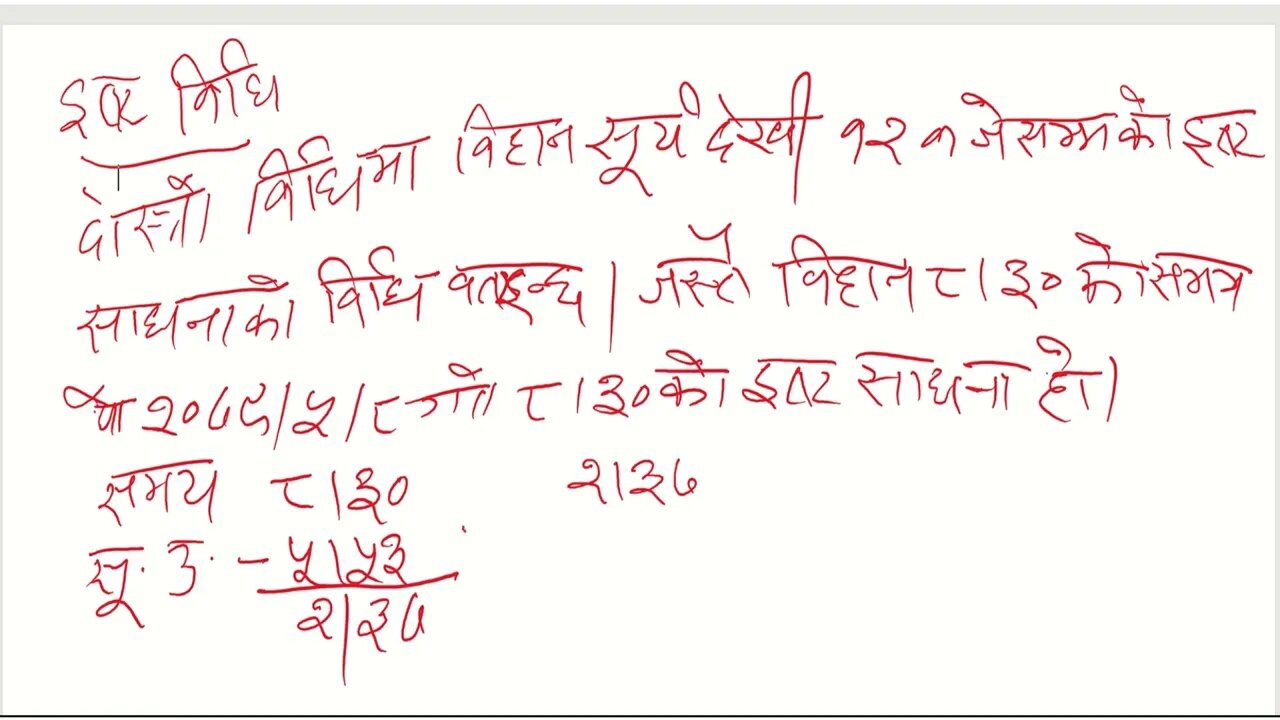 इष्ट विधि
दोस्रो विधिमा विहान सूर्य देखी १२ वजे सम्मको इष्ट
साधनाको विधि वताइन्छ। जस्तै विहान ८।३० को समय
२०७९/५/८ गते ८।३० को इष्ट साधना हो।
समय ८।३० २।३७
सू. उ. - ५।५३
२।३७